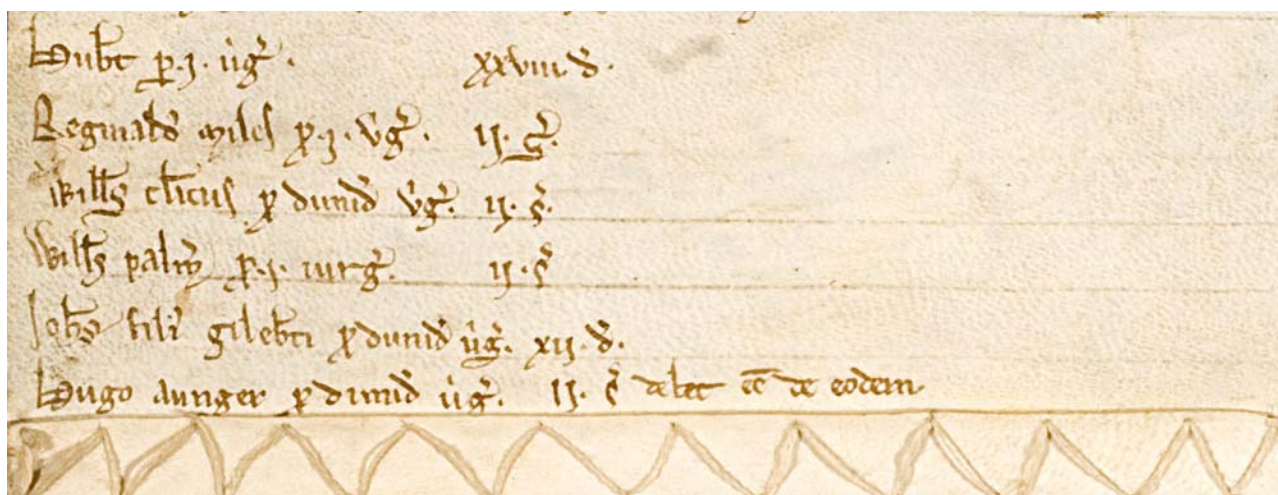 Hubt̄ p̱.j. úg̃. xxviii. đ.
Reginald᷒ Miles p̱.j. v́g̃. ii. s̃.
Will̄s cl̄icus p̱ dimid̃ v́g̃. ii. s̃.
Will̄s palm̃ p̱.j. uirg̃. ii. s̃
Joh̄s fili᷒ gileb̄ti p̱ dimid̃ úg̃. xii. đ.
Hugo aunger p̱ dimid̃ úg̃. ii. s̃ debet ēē de eodem.